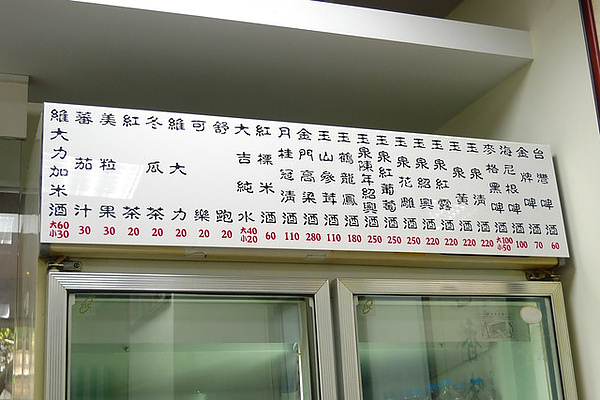 台灣啤酒 60
金牌啤酒 70
海尼根啤酒 100
麥格黑啤酒 大100 小50
玉泉清酒 220
玉泉黃酒 220
玉泉紅露酒 220
玉泉紹興酒 220
玉泉花雕酒 250
玉泉紅葡萄酒 250
玉泉陳年紹興酒 250
玉鶴龍鳳酒 180
玉山參茸酒 110
金門高梁酒 280
月桂冠清酒 110
紅標米酒 60
大吉純水 大40 小20
舒跑 20
可樂 20
維大力 20
冬瓜茶 20
紅茶 20
美粒果 30
蕃茄汁 30
維大力加米酒 大60 小30